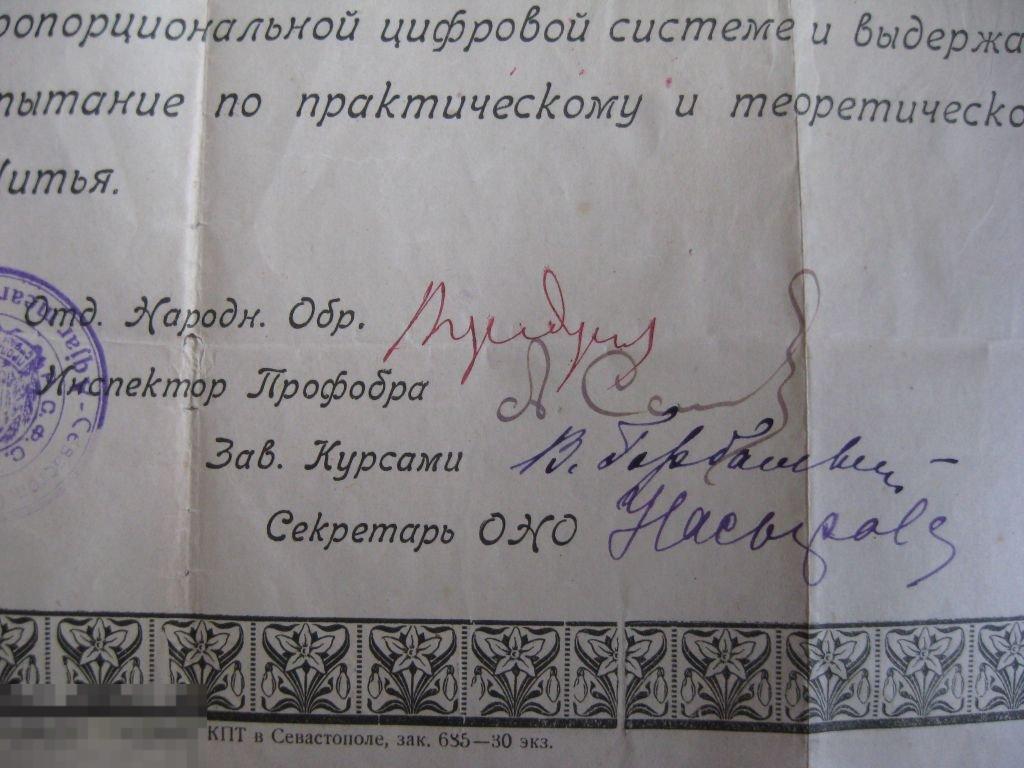 ропорциональной цифровой системе и выдержа
пытание по практическому и теоретическо
Шитья.
Отд. Народн. Обр.
Инспектор Профобра
Зав. Курсами В.
Секретарь ОНО Насырова
КПТ в Севастополе, зак. 685—30 экз.